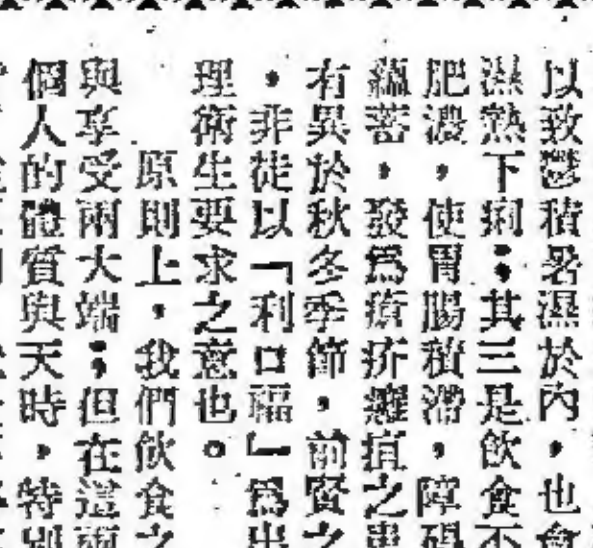 以致鬱積暑濕於內，也會
濕熱下痢；其三是飲食不
肥濃，使胃腸積滯，障碍
蘊蓄，發爲瘡疥癰疽之患
有異於秋冬季節，前賢之
，非徒以「利口福」爲出
理衛生要求之意也。
原則上，我們飲食之
與享受兩大端；但在這兩
個人的體質與天時，特別